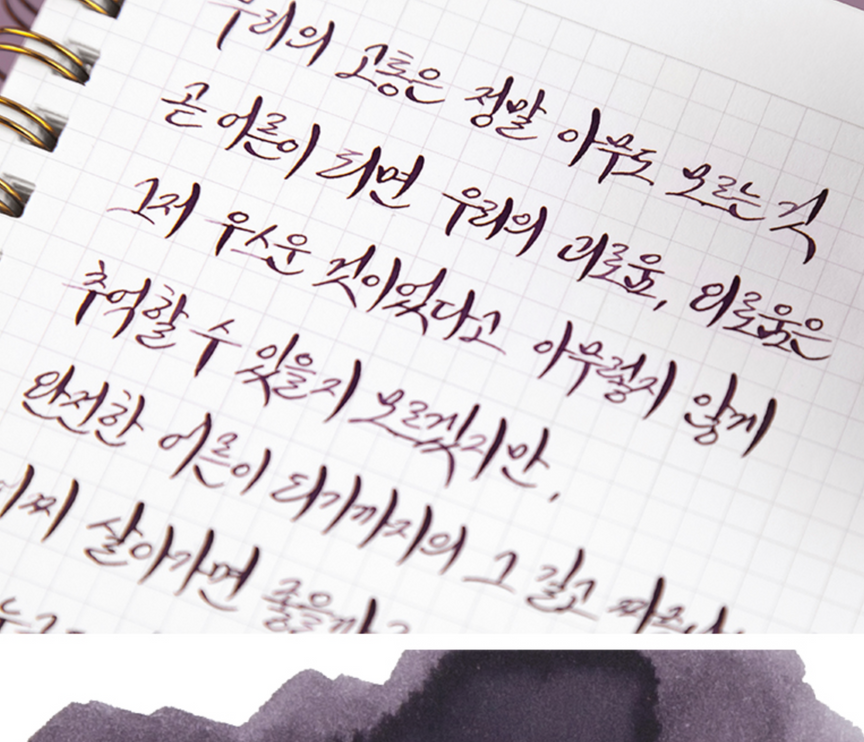 우리의 고통은 정말 아무도 모르는 걸
곧 어른이 되면 우리의 괴로움, 외로움은
그저 우스운 것이었다고 아무렇지 않게
추억할 수 있을지 모르겠지만,
완전한 어른이 되기까지의 그 길고
어찌 살아가면 좋을까